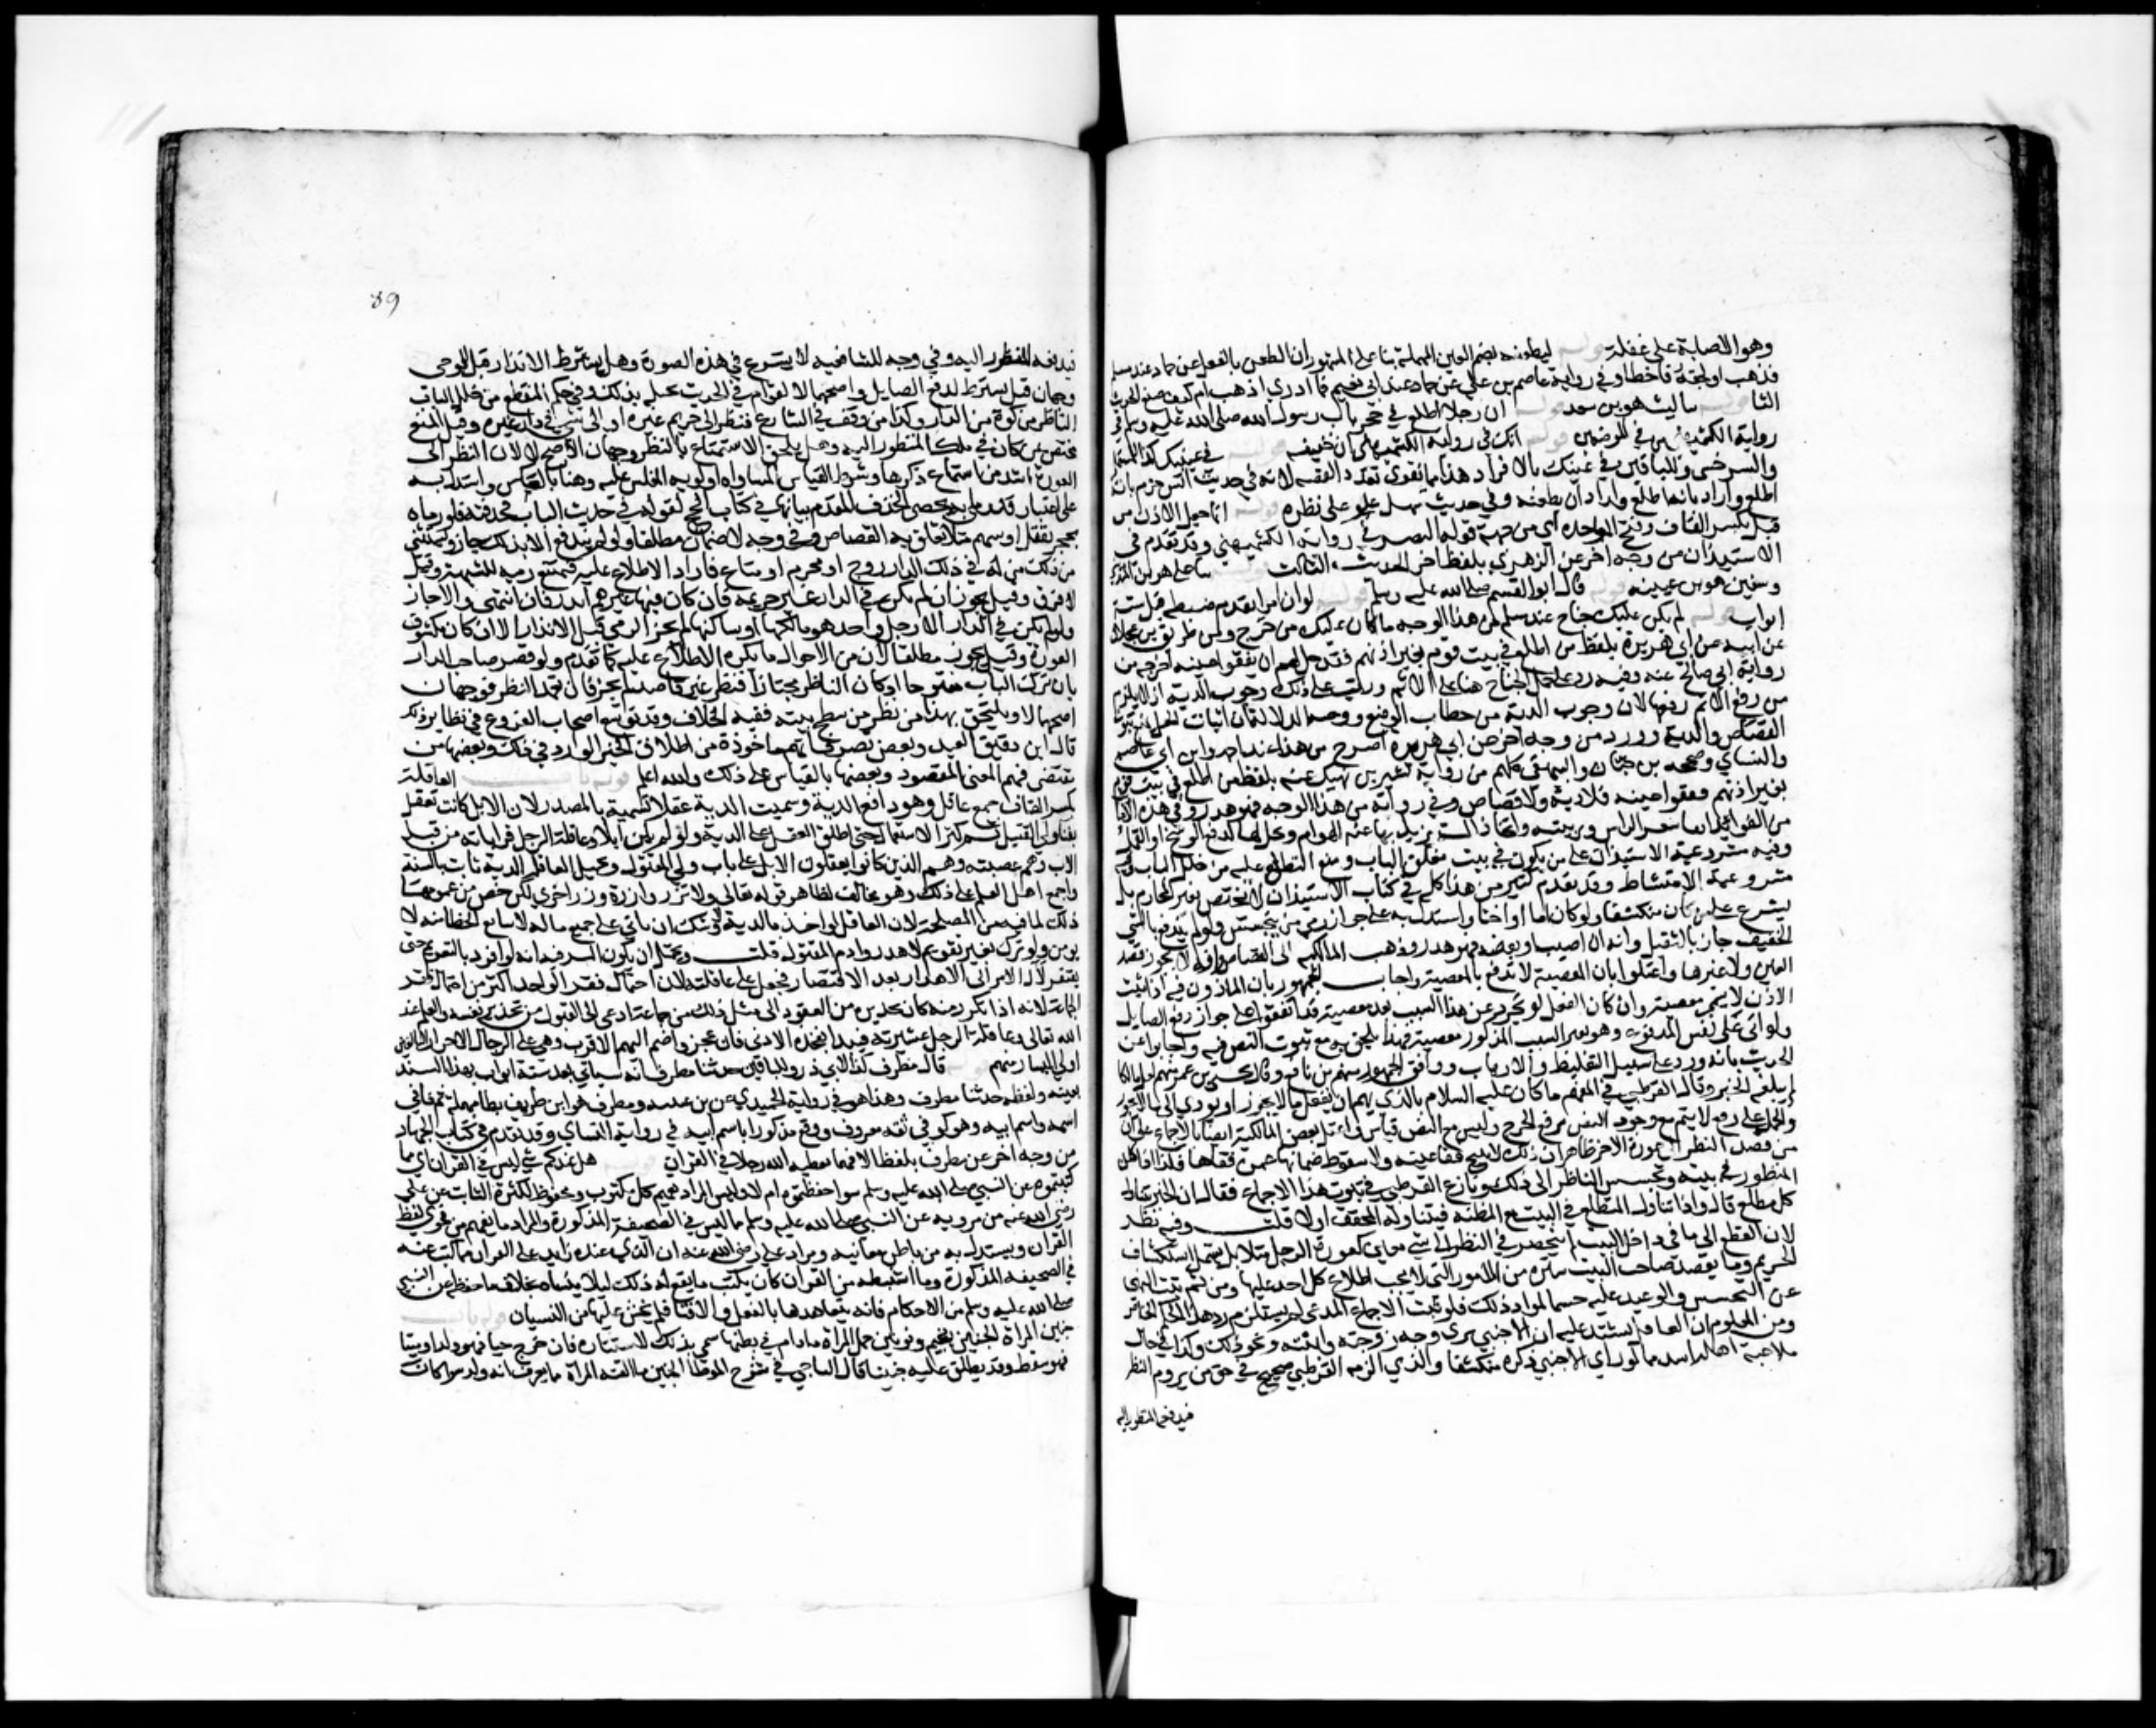 وهو الاصابة على غفلة قوله ليطعنه بضم العين المهملة بناء على المشهور ان الطعن بالفعل
فذهب او لحقه فاخطا وفي رواية عاصم بن علي عن حماد عند ابي نعيم فما ادري اذهب ام كيف صنع الحديث
الثا قوله ليث هو بن سعد قوله ان رجلا اطلع في جحر باب رسول الله صلى الله عليه وسلم في
رواية الكشميهني في الموضعين قوله انك في رواية الكشميهني ان خفيف قوله في عينيك كذا للمستملي
والسرخسي وللباقين في عينك بالافراد هذا مما يقوي تعدد القصه لانه في حديث انس جزم بانه
اطلع واراد ان يطعنه وفي حديث سهل علق على نظره قوله انما جعل الاذن من
قبل بكسر القاف وفتح الموحدة اي من جهة قوله البصر في رواية الكشميهني وقد تقدم في
الاستيذان من وجه اخر عن الزهري بلفظ اخر الحديث الثالث
وسفين هو بن عيينه قوله قال ابو القسم صلى الله عليه وسلم قوله لو ان امرا تقدم ضبطه قبل ستة
ابواب قوله لم يكن عليك جناح عند مسلم من هذا الوجه ما كان عليك من حرج ومن طريق بن عجلان
عن ابيه عن ابي هريرة بلفظ من اطلع في بيت قوم بغير اذنهم فقد حل لهم ان يفقوا عينه اخرجه من
رواية ابي صالح عنه وفيه رد على من حمل الجناح هنا على الاثم ورتب على ذلك وجوب الدية اذ لا يلزم
من رفع الاثم رفعها لان وجوب الدية من خطاب الوضع ووجه الدلالة ان اثبات الحل يمنع ثبوت
القصاص والدية وورد من وجه اخر عن ابي هريره اصرح من هذا عند احمد وابن ابي عاصم
والنساي وصححه بن حبان والبيهقي كلهم من رواية بشير بن نهيك عنه بلفظ من اطلع في بيت قوم
بغير اذنهم ففقوا عينه فلا دية ولا قصاص وفي رواية من هذا الوجه فهو هدر وفي هذه الاحاديث
من الفوايد ابقا شعر الراس وتربيته واتخاذ الة يزيل بها عنه الهوام ويحك بها لدفع الوسخ او القمل
وفيه مشروعية الاستيذان على من يكون في بيت مغلق الباب ومنع التطلع عليه من خلل الباب وفيه
مشروعية الامتشاط وقد تقدم كثير من هذا كله في كتاب الاستيذان لا يختص بغير المحارم بل
يشرع على من كان منكشفا ولو كان اما او اختا واستدل به على جواز رمي من يتجسس ولو لم يندفع بالشي
الخفيف جاز بالثقيل وانه ان اصيب او بعضه فهو هدر وذهب المالكيه الى القصاص وانه لا يجوز قصد
العين ولا غيرها واعتلوا بان المعصية لا تدفع بالمعصية واجاب الجمهور بان الماذون فيه اذا ثبت
الاذن لا يسمى معصية وان كان الفعل لو تجرد عن هذا السبب يعد معصية وقد اتفقوا على جواز دفع الصايل
ولو اتى على نفس المدفوع وهو بغير السبب المذكور معصية فهذا يلحق به مع ثبوت النص فيه واجابوا عن
الحديث بانه ورد على سبيل التغليظ والارهاب ووافق الجمهور منهم بن نافع وقال يحيى بن عمر منهم لعل مالكا
لم يبلغه الخبر وقال القرطبي في المفهم ما كان عليه السلام بالذي يهم ان يفعل ما لا يجوز او يودي الى ما لا يجوز
والحمل على رفع الاثم لا يتم مع وجود النص برفع الحرج وليس مع النص قياس واعتل بعض المالكية ايضا بالاجماع على ان
من قصد النظر الى عورة الاخر ظاهر ان ذلك لا يبيح فقا عينه ولا سقوط ضمانها عمن فقاها فكذا اذا كان
المنظور في بيته وتجسس الناظر الى ذلك ونازع القرطبي في ثبوت هذا الاجماع فقال ان الخبر يتناول
كل مطلع قال واذا تناول المتطلع في البيت مع المظنه فتناوله المحقق اولى قلت وفيه نظر
لان التطلع الى ما في داخل البيت لم ينحصر في النظر الى شي معين كعورة الرجل مثلا بل يشمل استكشاف
الحريم وما يقصد صاحب البيت ستره من الامور التي لا يحب اطلاع كل احد عليها ومن ثم ثبت النهي
عن التجسس والوعيد عليه حسما لمواد ذلك فلو ثبت الاجماع المدعى لم يستلزم رد هذا الحكم الخاص
ومن المعلوم ان العاقل يشتد عليه ان الاجنبي يرى وجه زوجته وابنته ونحو ذلك وكذا في حال
ملاعبته اهله اشد مما لو راى الاجنبي ذكره منكشفا والذي الزمه القرطبي صحيح في حق من يروم النظر
فيدفعه المنظور اليه
89
فيدفعه المنظور اليه وفي وجه للشافعيه لا يشرع في هذه الصورة وهل يشترط الانذار قبل الرمي
وجهان قيل يشترط لدفع الصايل واصحهما لا لقوله في الحديث يختله بذلك وفي حكم المتطلع من خلل الباب
الناظر من كوة من الدار وكذا من وقف في الشارع فنظر الى حريم غيره او الى شي في دار غيره وقيل المنع
مختص بمن كان في ملك المنظور اليه وهل يلحق الاستماع بالنظر وجهان الاصح لا لان النظر الى
العورة اشد من استماع ذكرها وشرط القياس المساواه او اولوية المقيس عليه وهنا بالعكس واستدل به
على اعتبار قدر ما يرمى به بحصى الخذف المقدم بيانها في كتاب الحج لقوله في حديث الباب فخذفته فلو رماه
بحجر يقتل او سهم مثلا تعلق به القصاص وفي وجه لا ضمان مطلقا ولو لم يندفع الا بذلك جاز ويستثنى
من ذلك من له في ذلك الدار زوج او محرم او متاع فاراد الاطلاع عليه فيمتنع رميه للشبهة وقيل
لا فرق وقيل يجوز ان لم يكن في الدار غير حريمه فان كان فيها غيرهم انذر فان انتهى والا جاز
ولو لم يكن في الدار الا رجل واحد هو مالكها او ساكنها لم يجز الرمي قبل الانذار الا ان كان مكشوف
العورة وقيل يجوز مطلقا لان من الاحوال ما يكره الاطلاع عليه كما تقدم ولو قصر صاحب الدار
بان ترك الباب مفتوحا او كان الناظر مجتازا فنظر غير قاصد لم يجز فان تعمد النظر فوجهان
اصحهما لا ويلتحق بهذا من نظر من سطح بيته ففيه الخلاف وقد توسع اصحاب الفروع في نظاير ذلك
قال ابن دقيق العيد وبعض تصرفاتهم ماخوذة من اطلاق الخبر الوارد في ذلك وبعضها من
مقتضى فهم المعنى المقصود وبعضها بالقياس على ذلك والله اعلم قوله باب العاقلة
بكسر القاف جمع عاقل وهو دافع الدية وسميت الدية عقلا تسمية بالمصدر لان الابل كانت تعقل
بفناء ولي القتيل ثم كثر الاستعمال حتى اطلق العقل على الدية ولو لم يكن ابلا وعاقلة الرجل قراباته من قبل
الاب وهم عصبته وهم الذين كانوا يعقلون الابل على باب ولي المقتول وتحمل العاقلة الدية ثابت بالسنة
واجمع اهل العلم على ذلك وهو مخالف لظاهر قوله تعالى ولا تزر وازرة وزر اخرى لكن خص من عمومها
ذلك لما فيه من المصلحة لان القاتل لو اخذ بالدية لاوشك ان تاتي على جميع ماله لان تتابع الخطا منه لا
يومن ولو ترك بغير تغريم لاهدر دم المقتول قلت ويحتمل ان يكون السر فيه انه لو افرد بالتغريم حتى
يفتقر لآل الامر الى الاهدار بعد الافتقار فجعل على عاقلته لان احتمال فقر الواحد اكثر من احتمال فقر
الجماعة لانه اذا تكرر منه كان تحذيره من العود الى مثل ذلك من جماعة ادعى الى القبول من تحذيره نفسه والعلم عند
الله تعالى وعاقلة الرجل عشيرته فيبدا بفخذه الادنى فان عجزوا ضم اليهم الاقرب وهي على الرجال الاحرار البالغين
اولي اليسار منهم قوله قال مطرف كذا لابي ذر وللباقين حدثنا مطرف انه سياتي بعد ستة ابواب بهذا السند
بعينه ولفظه حدثنا مطرف وهذا هو في رواية الحميدي عن بن عيينه ومطرف هو ابن طريف بطا مهملة ثم فا في
اسمه واسم ابيه وهو كوفي ثقه معروف ووقع مذكورا باسم ابيه في رواية النساي وقد تقدم في كتاب الجهاد
من وجه اخر عن مطرف بلفظ الا فهما يعطيه الله رجلا في القران قوله هل عندكم شي ليس في القران اي مما
كتبتموه عن النبي صلى الله عليه وسلم سوا حفظتموه ام لا وليس المراد تعميم كل مكتوب ومحفوظ لكثرة الثابت عن علي
رضي الله عنه من مرويه عن النبي صلى الله عليه وسلم مما ليس في الصحيفة المذكورة والمراد ما يفهم من فحوى لفظ
القران ويستدل به من باطن معانيه ومراد علي رضي الله عنه ان الذي عنده زايد على القران مما كتب عنه
في الصحيفه المذكورة وما استنبطه من القران كان يكتب ما يقع له ذلك ليلا ينساه بخلاف ما حفظه عن النبي
صلى الله عليه وسلم من الاحكام فانه يتعاهدها بالفعل والافتا فلم يخش عليها من النسيان قوله باب
جنين المراة الجنين بجيم ونونين حمل المراة ما دام في بطنها سمي بذلك لاستتاره فان خرج حيا فهو ولد او ميتا
فهو سقط وقد يطلق عليه جنين قال الباجي في شرح الموطا الجنين ما القته المراة مما يعرف انه ولد سوا كان